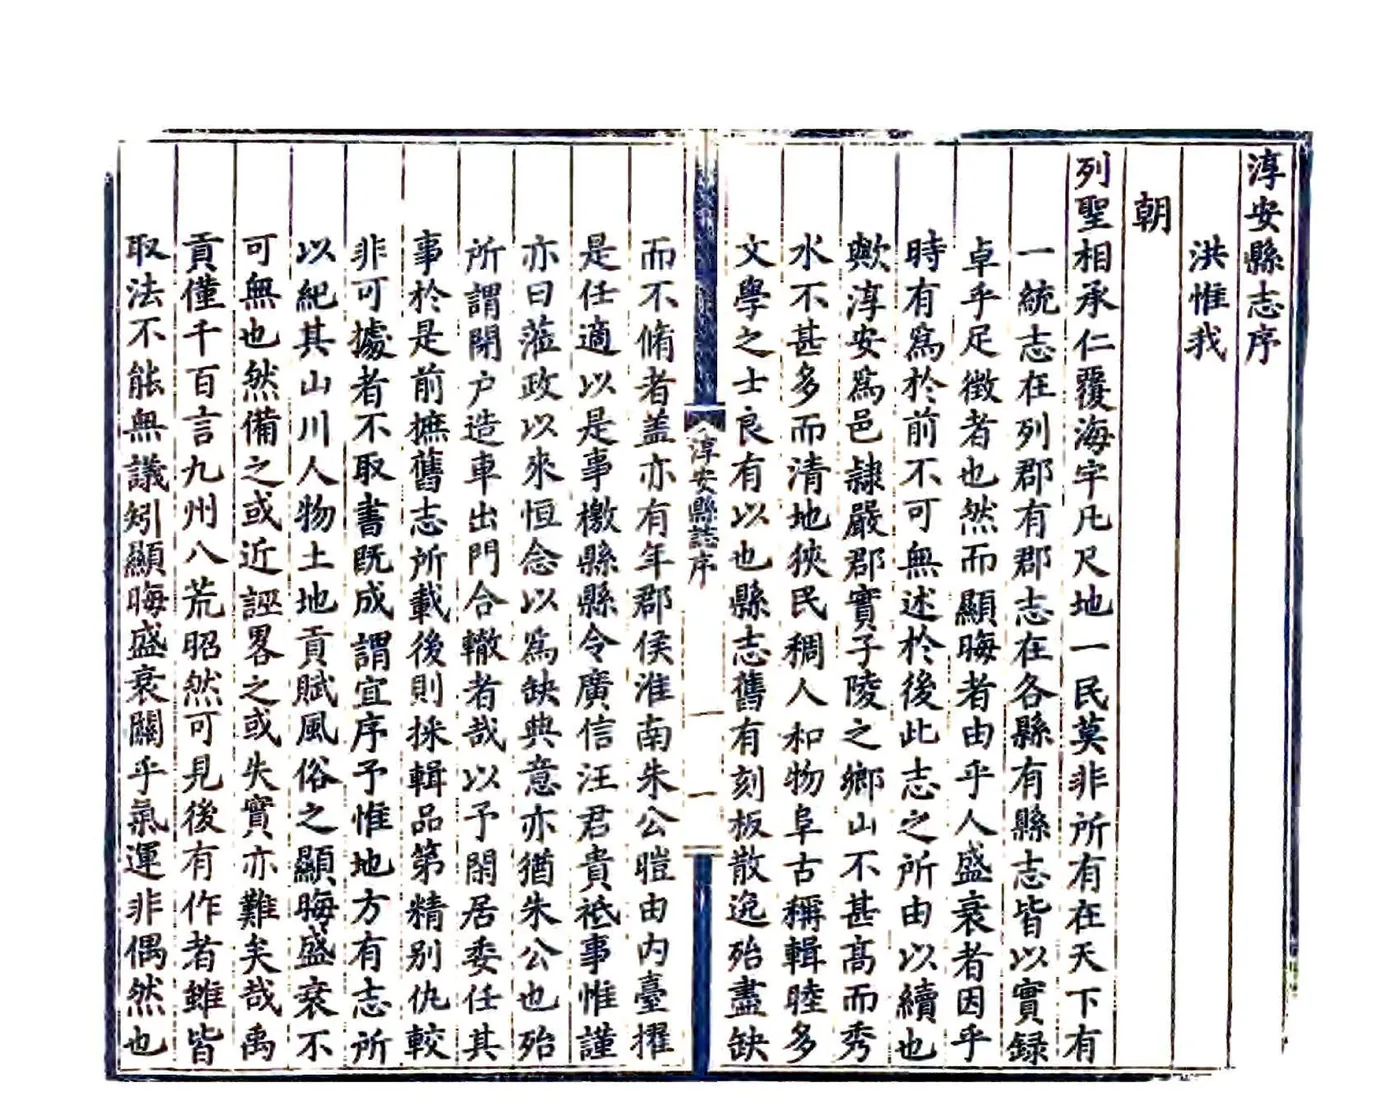 淳安縣志序
洪惟我
朝
列聖相承仁覆海宇凡尺地一民莫非所有在天下有
一統志在列郡有郡志在各縣有縣志皆以實録
卓乎足徴者也然而顯晦者由乎人盛衰者因乎
時有爲於前不可無述於後此志之所由以續也
歟淳安爲邑隷嚴郡實子陵之鄉山不甚髙而秀
水不甚多而清地狹民稠人和物阜古稱輯睦多
文學之士良有以也縣志舊有刻板散逸殆盡缺
淳安縣誌序
一
一
而不脩者盖亦有年郡侯淮南朱公暟由内臺擢
是任適以是事檄縣縣令廣信汪君貴祗事惟謹
亦曰蒞政以來恒念以爲缺典意亦猶朱公也殆
所謂閉户造車出門合轍者哉以予閑居委任其
事於是前摭舊志所載後則採輯品第精别仇較
非可據者不取書既成謂宜序予惟地方有志所
以紀其山川人物土地貢賦風俗之顯晦盛衰不
可無也然備之或近誣畧之或失實亦難矣哉禹
貢僅千百言九州八荒昭然可見後有作者雖皆
取法不能無議矧顯晦盛衰關乎氣運非偶然也